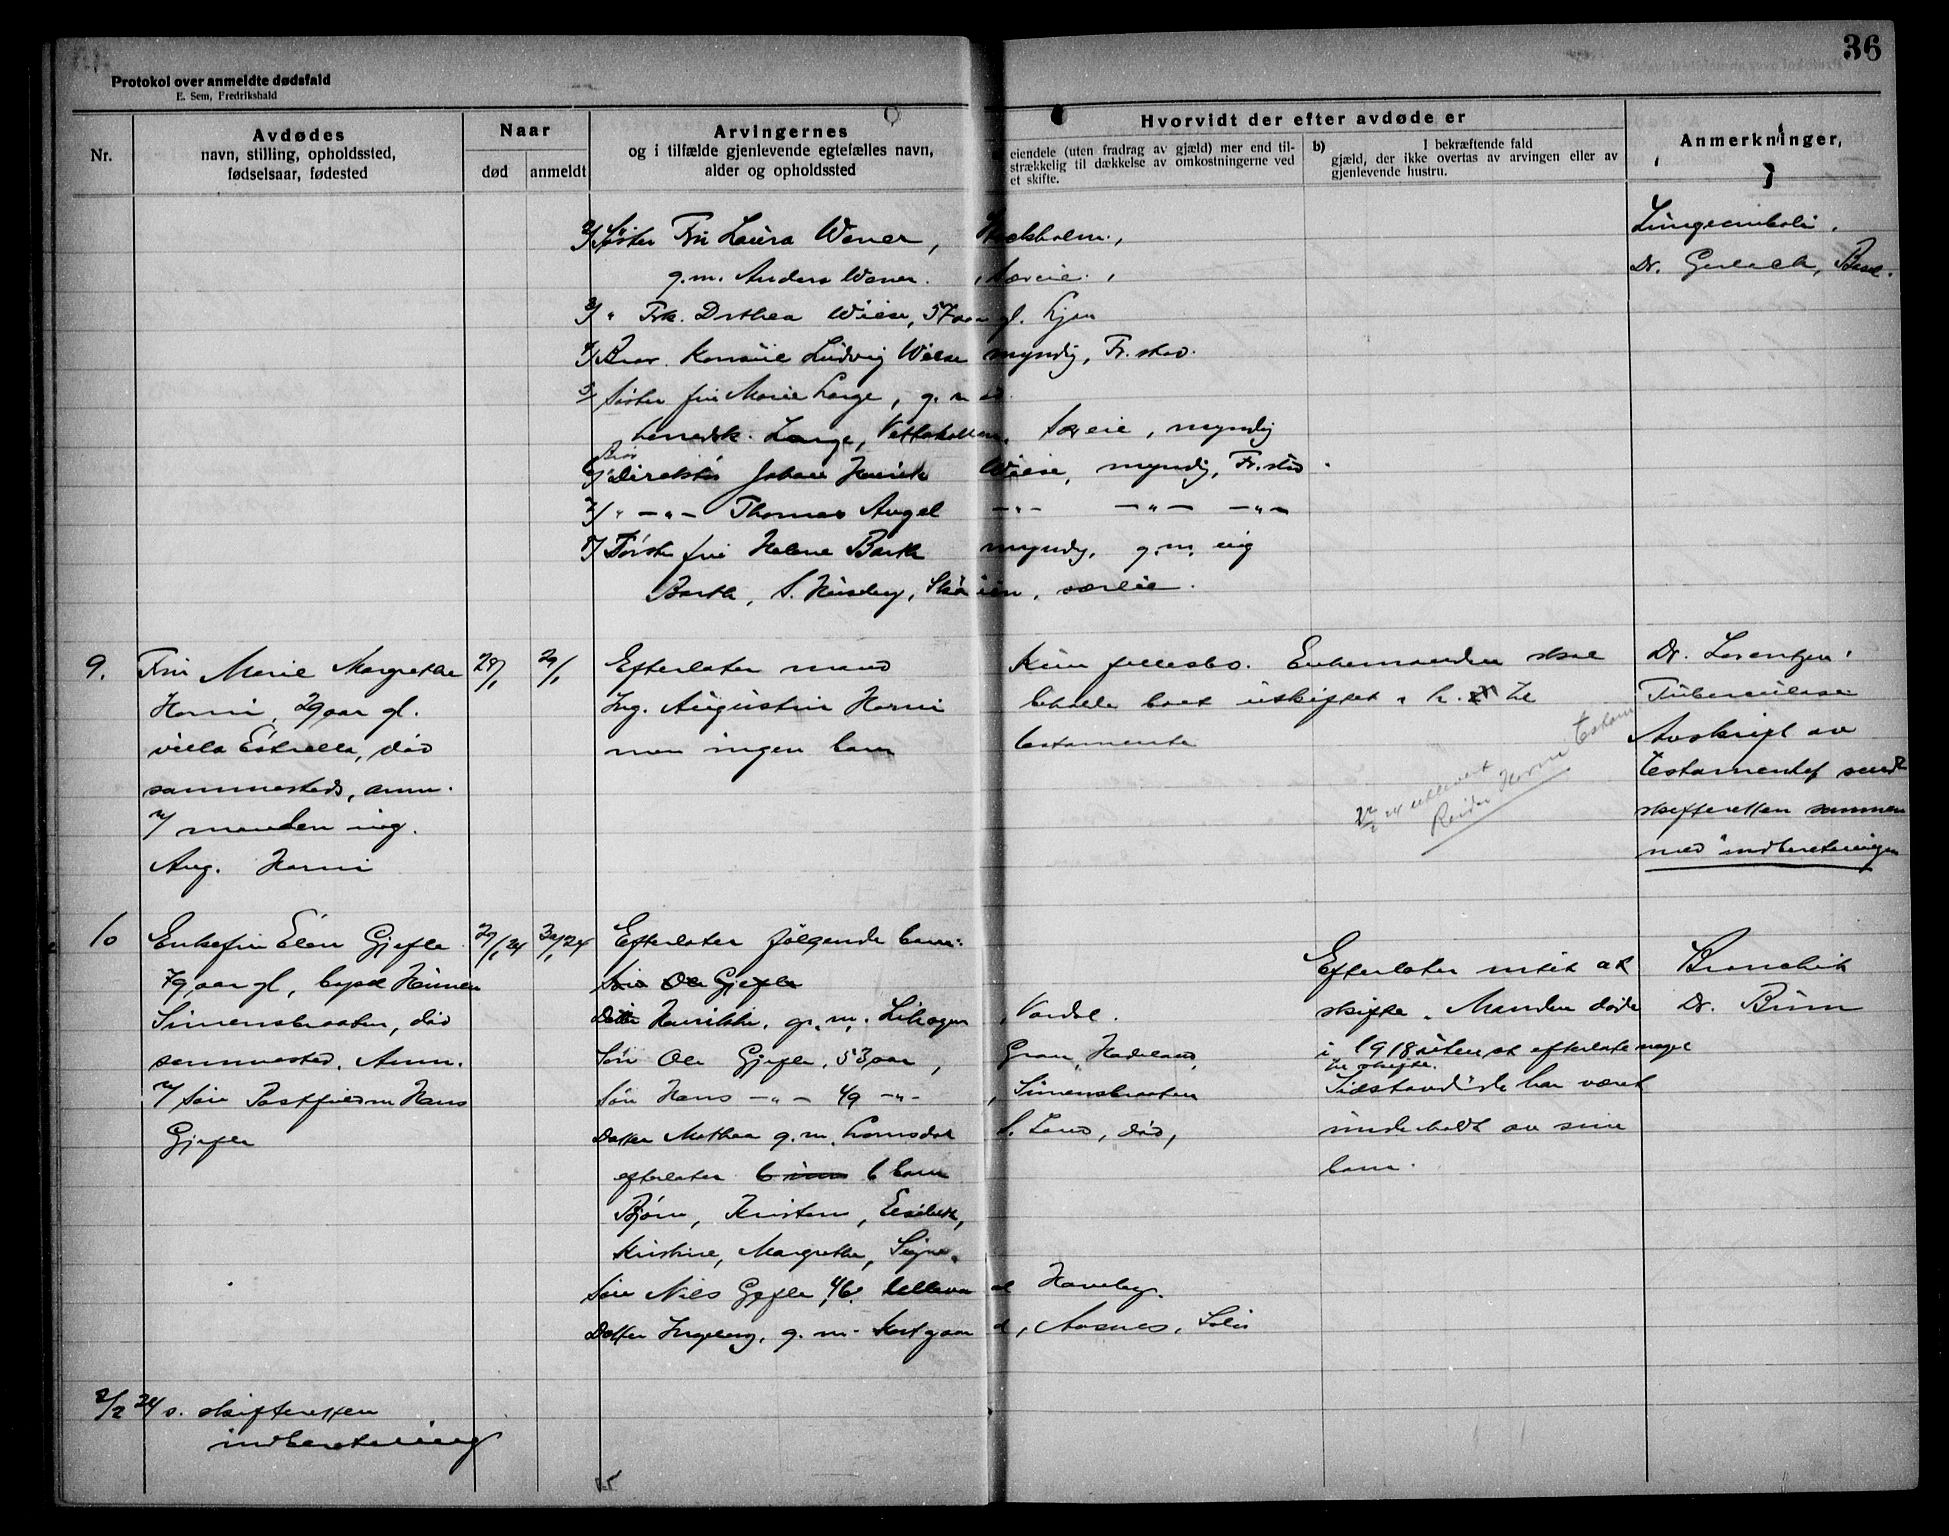 36
Protokol over anmeldte dødsfald
E. Sem, Fredrikshald
Nr.
Avdødes
navn, stilling, opholdssted,
fødselsaar, fødested
Naar
død
anmeldt
Arvingernes
og i tilfælde gjenlevende egtefælles navn,
alder og opholdssted
Hvorvidt der efter avdøde er
eiendele (uten fradrag av gjæld) mer end til-
strækkelig til dækkelse av omkostningerne ved
et skifte.
b) I bekræftende fald
gjæld, der ikke overtas av arvingen eller av
gjenlevende hustru.
Anmerkninger,
2/ Søster Fru Laura Waner, Stockholm,
g.m. Anders Waner. Særeie.
3/ " Frk. Dorthea Wiese, 57 aar gl. Ljan
4/ Bror. Konsul Ludvig Wiese myndig, Fr.stad.
5/ Søster fru Marie Lange, g. m
Lange, Vettakollen. Særeie, myndig
Bror
6/ Direktør Johan Henrik Wiese, myndig, Fr.stad.
7/ " — " — Thomas Angel — " — — " — — " —
8/ Søster fru Helene Barth myndig, g.m. ing
Barth, Skøien, særeie.
Lungeemboli.
Dr.
9.
Fru Marie Margrethe
Horni, 29 aar gl.
villa Estrella, død
sammesteds, anm.
v/ manden ing.
Aug. Horni
28/1
29/1
Efterlater mand
Ing. Augustin Horni
men ingen barn
Kun fellesbo. Enkemanden skal
beholde boet uskiftet i h. t. til
testamente
22/2 24 utlevert
Reidar Horni testam
Dr. Lorentzen.
Tuberculose
Avskrift av
testamentet sendt
skifteretten sammen
med indberetningen
10
Enkefru Elen Gjefle
79 aar gl, bopæl
Simensbraaten, død
sammested. Anm.
v/ søn Postfuldm Hans
Gjefle
29/1 24
30/1 24
Efterlater følgende barn:
Søn Ole Gjefle
Datter Henrikke, g. m. , Vardal.
Søn Ole Gjefle, 53 aar, Gran, Hadeland,
Søn Hans — " — 49 — " — , Simensbraaten
Datter Mathea g. m. Lomsdal S. Land, død,
efterlater 6 barn
Bjørn, Kristen, Elisabeth,
Kristine, Margrethe, Signe.
Søn Nils Gjefle, 46, Ullevaal Haveby.
Datter Ingeborg, g. m. , Aasnes, Solør
Efterlater intet at
skifte. Manden døde
i 1918 uten at efterlate noget
til skifte.
Sidstavdøde har været
underholdt av sine
barn.
Bronchit
Dr. Bruun
2/2 24 s. skifteretten
indberetning